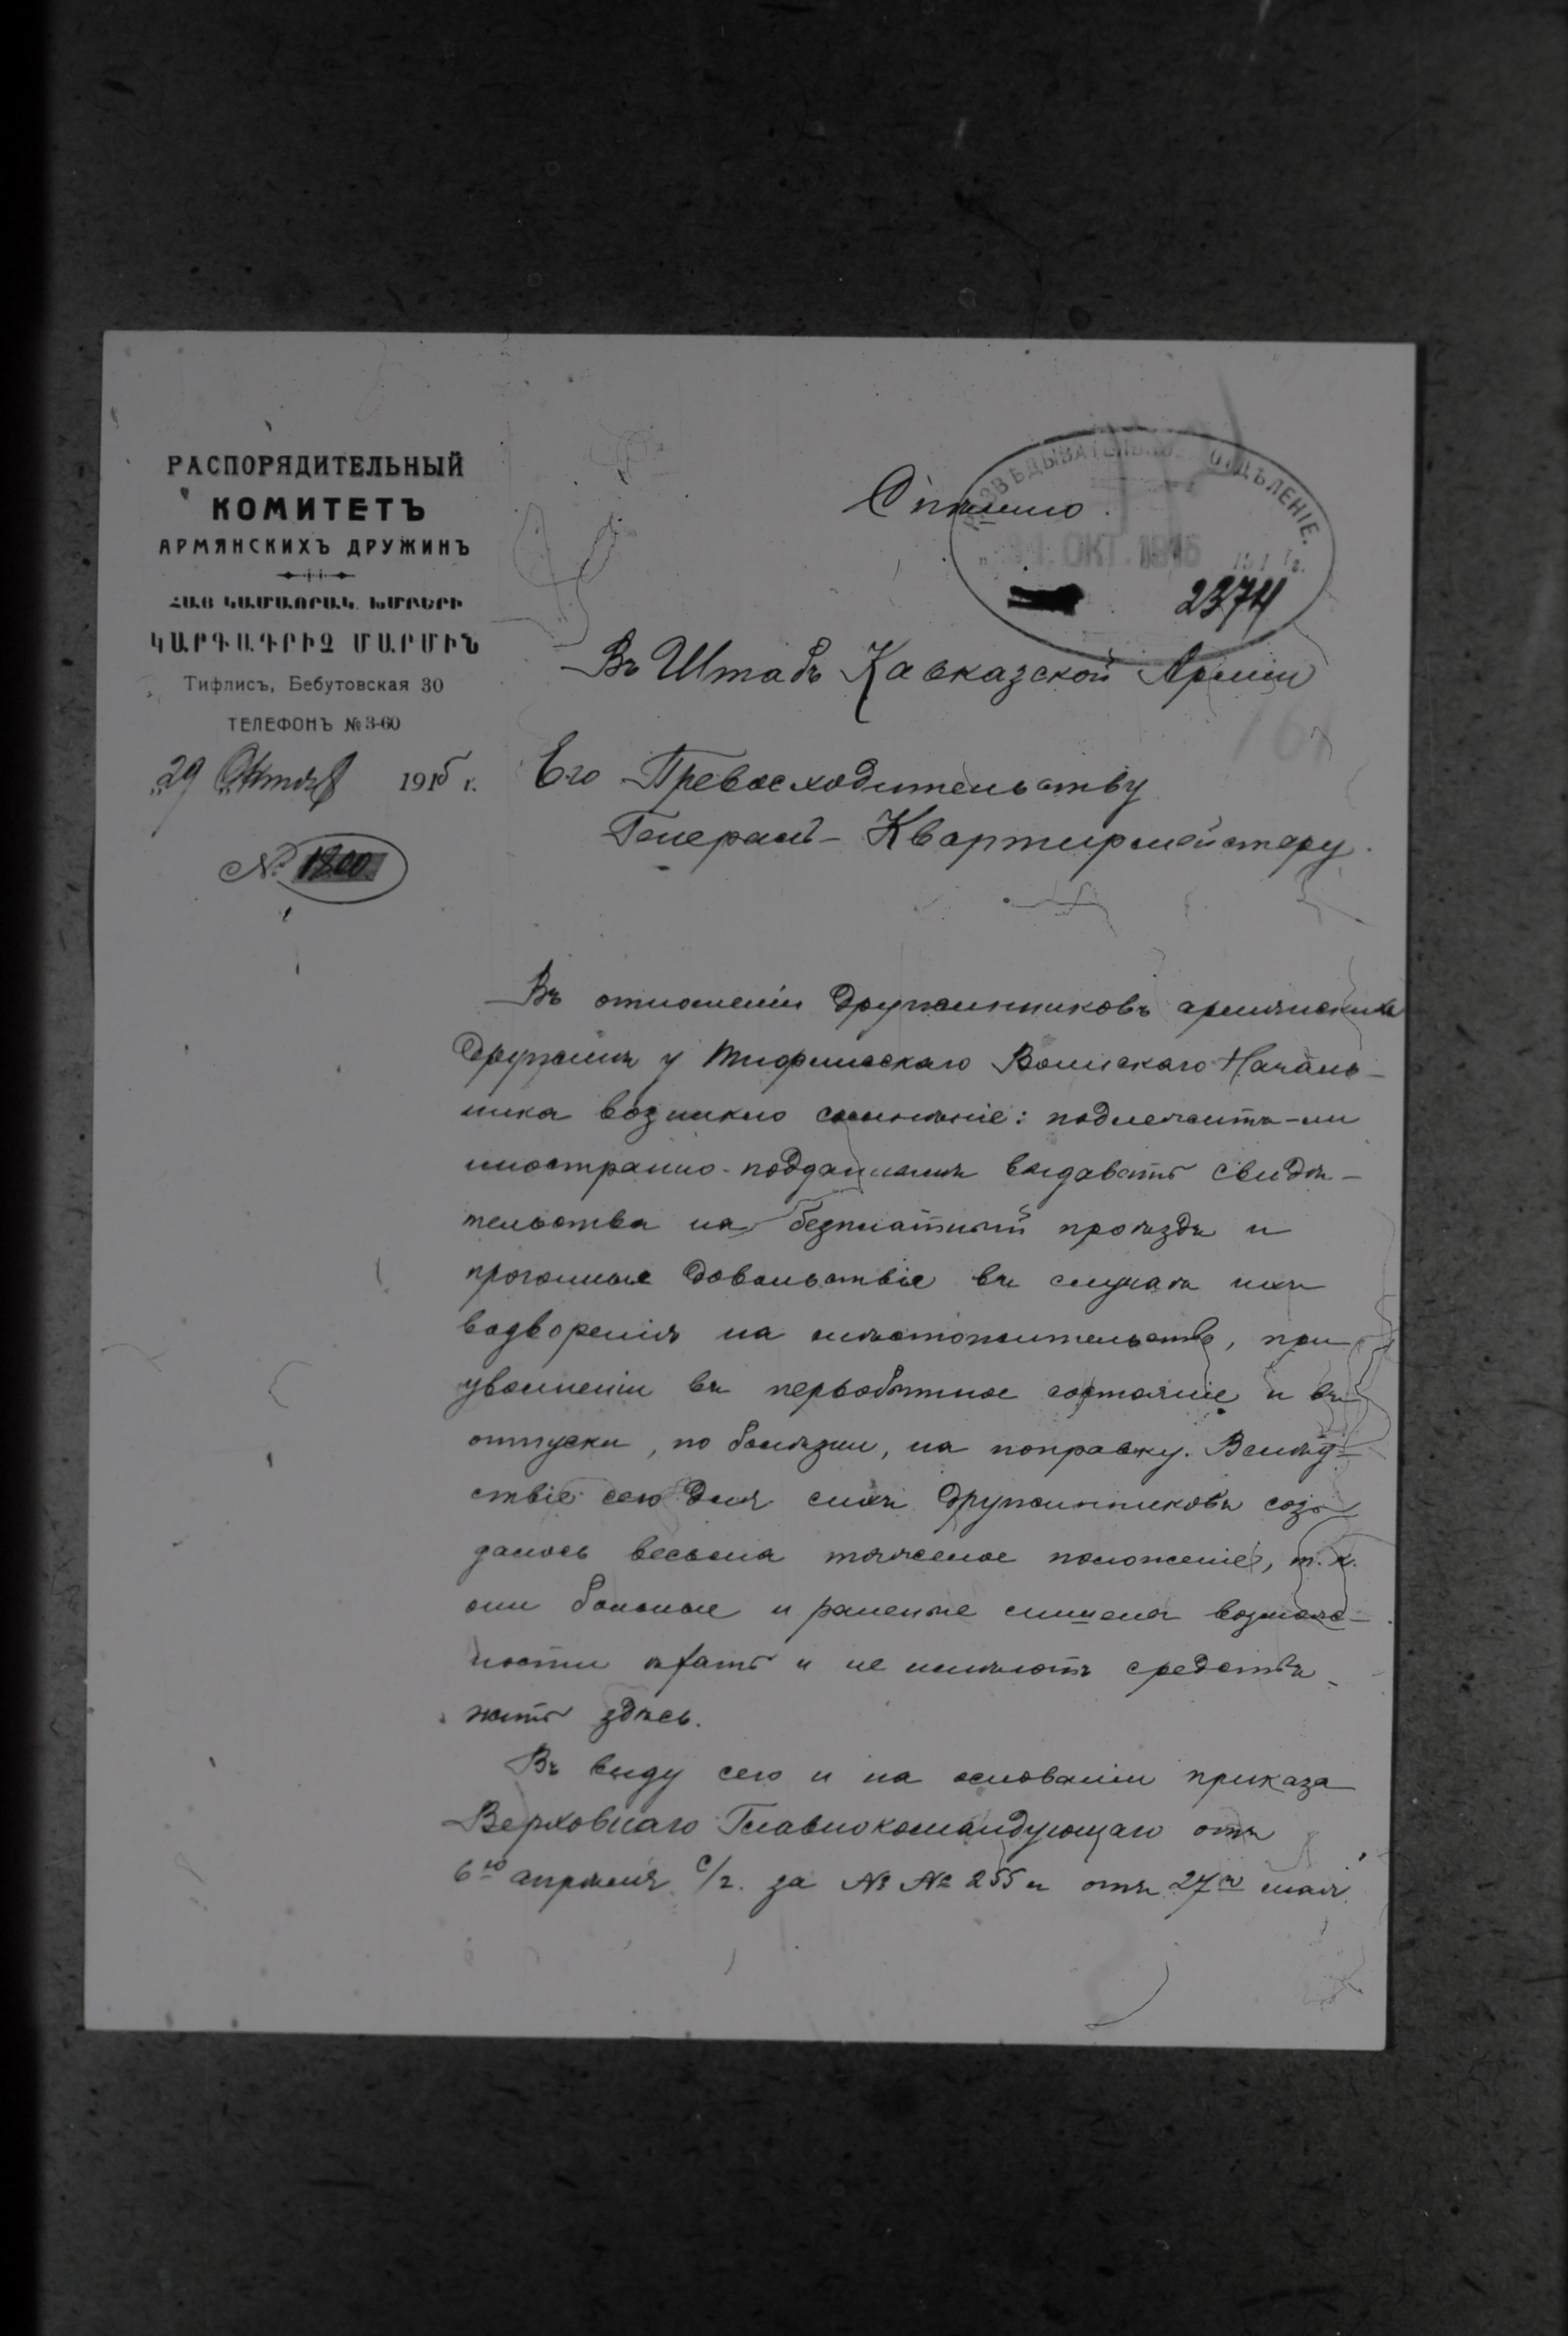 РАСПОРЯДИТЕЛЬНЫЙ
КОМИТЕТЪ
АРМЯНСКИХЪ ДРУЖИНЪ
ՀԱՅ ԿԱՄԱՒՈՐԱԿ. ԽՄԲԵՐԻ
ԿԱՐԳԱԴՐԻՉ ՄԱՐՄԻՆ
Тифлисъ, Бебутовская 30
ТЕЛЕФОНЪ № 3-60
„29 Октября 1915 г.
№ 1800
Спѣшно.
РАЗВѢДЫВАТЕЛЬНОЕ ОТДѢЛЕНІЕ.
ОКТ. 1915
2374
Въ Штабъ Кавказской Арміи
Его Превосходительству
Генералъ-Квартирмейстеру.
Въ отношеніи дружинниковъ армянскихъ
дружинъ у Тифлисскаго Воинскаго Началь-
ника возникло сомнѣніе: подлежитъ-ли
иностранно-подданнымъ выдавать свидѣ-
тельства на безплатный проѣздъ и
прогонные довольствіе въ случаѣ ихъ
водворенія на мѣстожительство, при
увольненіи въ первобытное состояніе и въ
отпуски, по болѣзни, на поправку. Вслѣд-
ствіе сего для сихъ дружинниковъ соз-
далось весьма тяжелое положеніе, т.к.
они больные и раненые лишены возмож-
ности ѣхать и не имѣютъ средствъ
жить здѣсь.
Въ виду сего и на основаніи приказа
Верховнаго Главнокомандующаго отъ
6го апрѣля с/г. за № № 255 и отъ 27го мая